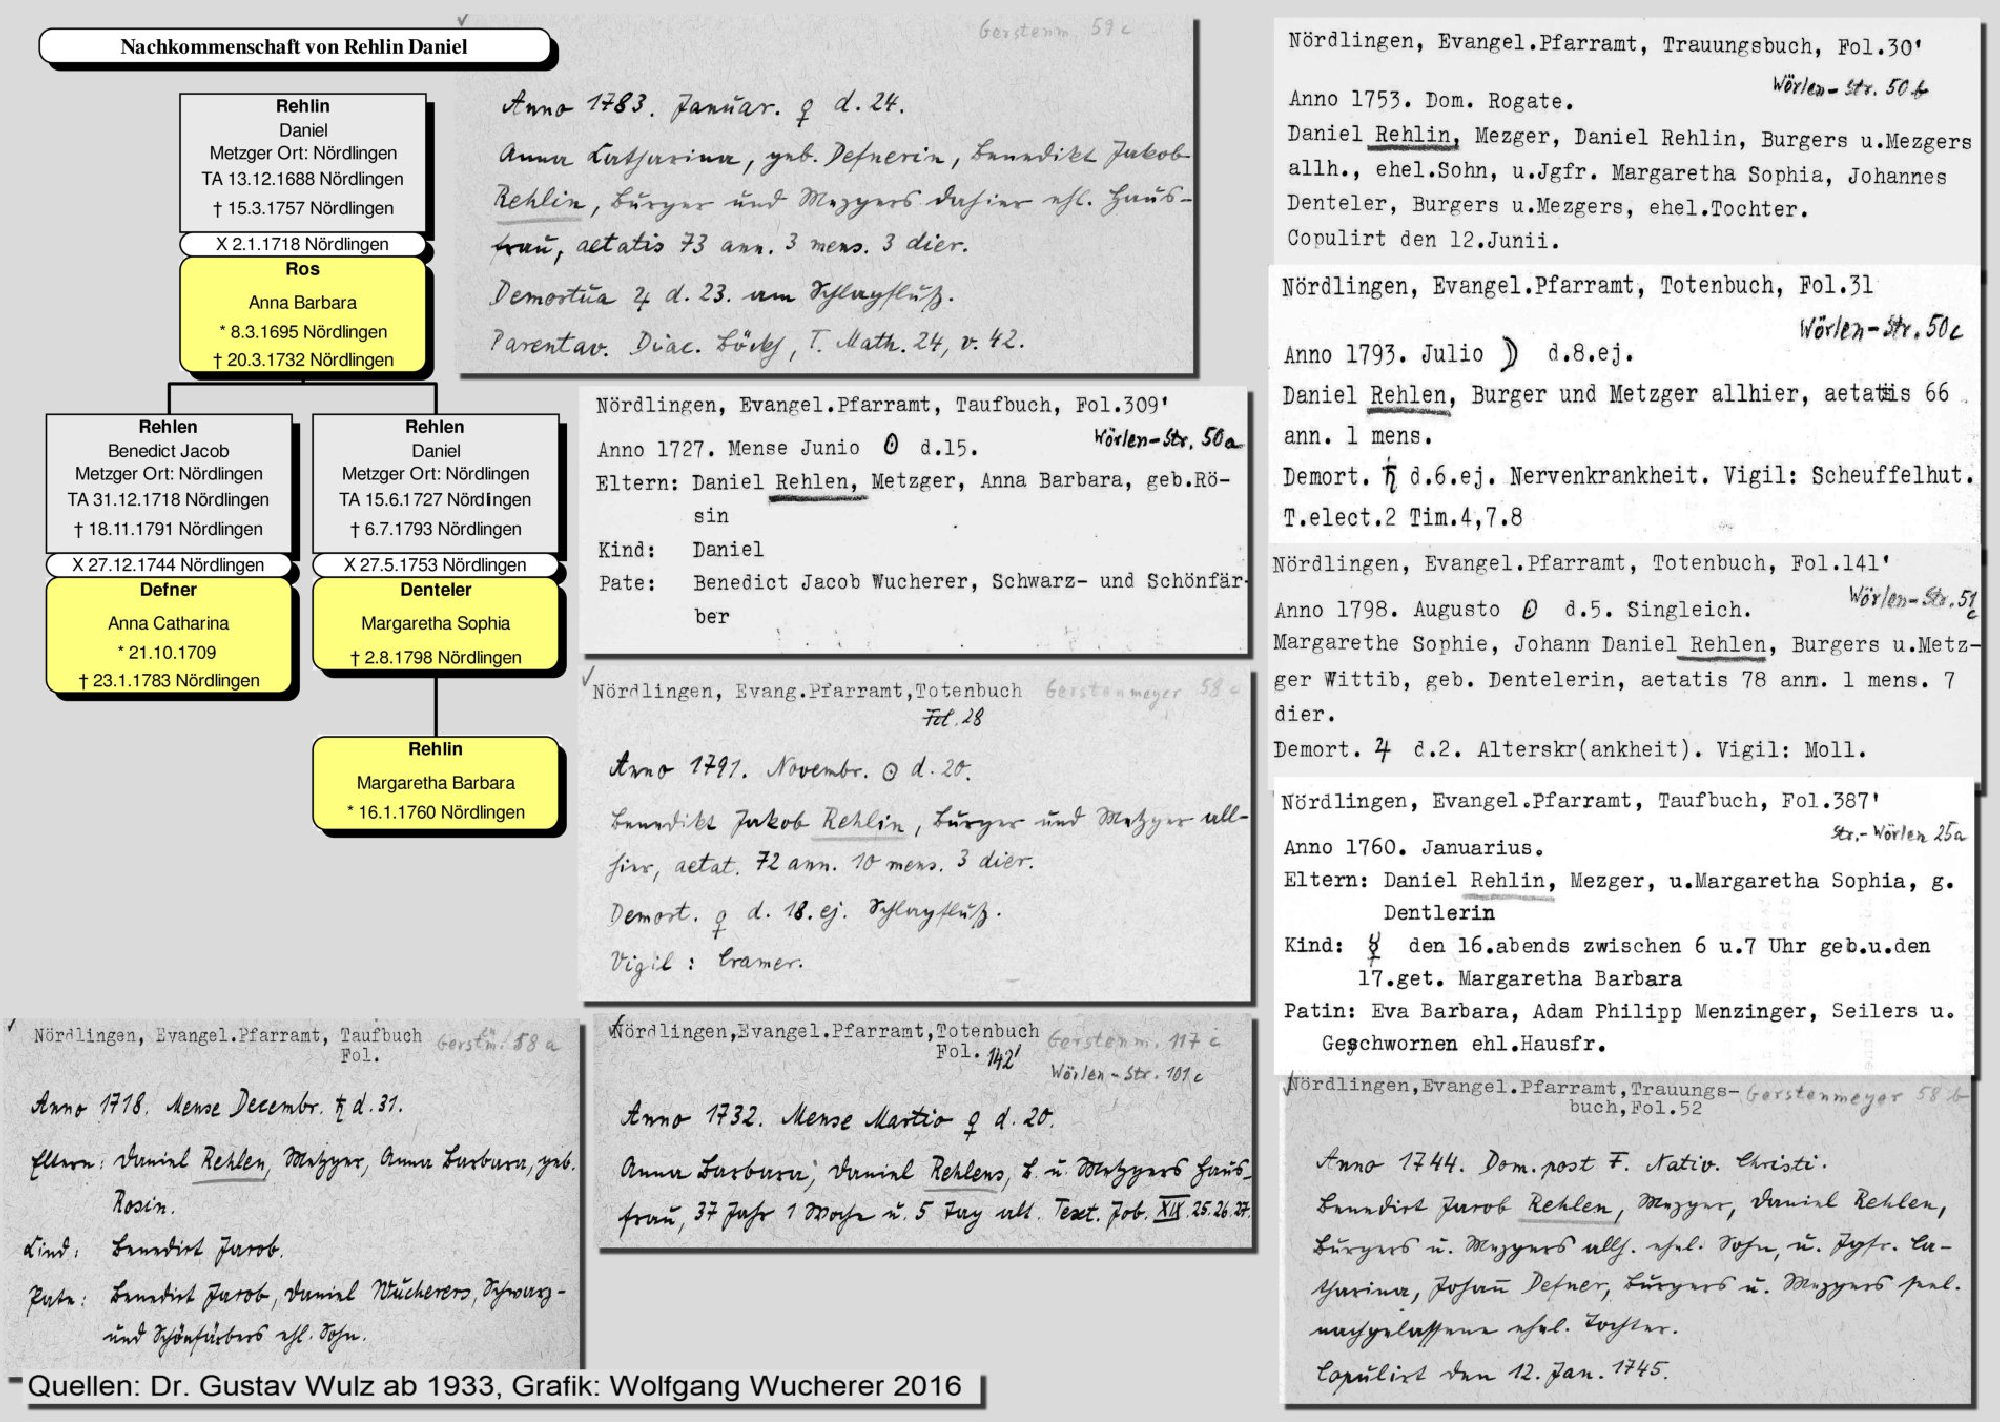 Nachkommenschaft von Rehlin Daniel
Rehlin
Daniel
Metzger Ort: Nördlingen
TA 13.12.1688 Nördlingen
† 15.3.1757 Nördlingen
X 2.1.1718 Nördlingen
Ros
Anna Barbara
* 8.3.1695 Nördlingen
† 20.3.1732 Nördlingen
Rehlen
Benedict Jacob
Metzger Ort: Nördlingen
TA 31.12.1718 Nördlingen
† 18.11.1791 Nördlingen
X 27.12.1744 Nördlingen
Defner
Anna Catharina
* 21.10.1709
† 23.1.1783 Nördlingen
Rehlen
Daniel
Metzger Ort: Nördlingen
TA 15.6.1727 Nördlingen
† 6.7.1793 Nördlingen
X 27.5.1753 Nördlingen
Denteler
Margaretha Sophia
† 2.8.1798 Nördlingen
Rehlin
Margaretha Barbara
* 16.1.1760 Nördlingen
Gerstenm. 59 c
Anno 1783. Januar. ♀ d. 24.
Anna Catharina, geb. Defnerin, Benedikt Jakob
Rehlin, Bürger und Mezgers dahier ehl. Haus-
frau, aetatis 73 ann. 3 mens. 3 dier.
Demortua ♃ d. 23. am Schlagfluß.
Parentav. Diac. Böckh, T. Math. 24, v. 42.
Nördlingen, Evangel.Pfarramt, Taufbuch, Fol.309'
Wörlen-Str. 50a
Anno 1727. Mense Junio ☉ d.15.
Eltern: Daniel Rehlen, Metzger, Anna Barbara, geb.Rö-
sin
Kind: Daniel
Pate: Benedict Jacob Wucherer, Schwarz- und Schönfär-
ber
Nördlingen, Evang.Pfarramt,Totenbuch Gerstenmeyer 58 c
Fol. 28
Anno 1791. Novembr. ☉ d. 20.
Benedikt Jakob Rehlin, Bürger und Metzger all-
hier, aetat. 72 ann. 10 mens. 3 dier.
Demort. ♀ d. 18. ej. Schlagfluß.
Vigil: Cramer.
Nördlingen, Evangel.Pfarramt, Taufbuch Gerstm. 58 a
Fol.
Anno 1718. Mense Decembr. ♄ d. 31.
Eltern: Daniel Rehlen, Metzger, Anna Barbara, geb.
Rosin.
Kind: Benedict Jacob.
Pate: Benedict Jacob, Daniel Wucherers, Schwarz-
und Schönfärbers ehl. Sohn.
Nördlingen,Evangel.Pfarramt,Totenbuch Gerstenm. 117 c
Fol. 142' Wörlen-Str. 101c
Anno 1732. Mense Martio ♀ d. 20.
Anna Barbara, Daniel Rehlens, B. u. Metzgers Haus-
frau, 37 Jahr 1 Woche u. 5 Tag alt. Text. Job. XIX. 25.26.27.
Nördlingen, Evangel.Pfarramt, Trauungsbuch, Fol.30'
Wörlen-Str. 50 b
Anno 1753. Dom. Rogate.
Daniel Rehlin, Mezger, Daniel Rehlin, Burgers u.Mezgers
allh., ehel.Sohn, u.Jgfr. Margaretha Sophia, Johannes
Denteler, Burgers u.Mezgers, ehel.Tochter.
Copulirt den 12.Junii.
Nördlingen, Evangel.Pfarramt, Totenbuch, Fol.31
Wörlen-Str. 50c
Anno 1793. Julio ☽ d.8.ej.
Daniel Rehlen, Burger und Metzger allhier, aetatis 66
ann. 1 mens.
Demort. ♄ d.6.ej. Nervenkrankheit. Vigil: Scheuffelhut.
T.elect.2 Tim.4,7.8
Nördlingen, Evangel.Pfarramt, Totenbuch, Fol.141'
Wörlen-Str. 51c
Anno 1798. Augusto ☉ d.5. Singleich.
Margarethe Sophie, Johann Daniel Rehlen, Burgers u.Metz-
ger Wittib, geb. Dentelerin, aetatis 78 ann. 1 mens. 7
dier.
Demort. ♃ d.2. Alterskr(ankheit). Vigil: Moll.
Nördlingen, Evangel.Pfarramt, Taufbuch, Fol.387'
Str.-Wörlen 25a
Anno 1760. Januarius.
Eltern: Daniel Rehlin, Mezger, u.Margaretha Sophia, g.
Dentlerin
Kind: ☿ den 16.abends zwischen 6 u.7 Uhr geb.u.den
17.get. Margaretha Barbara
Patin: Eva Barbara, Adam Philipp Menzinger, Seilers u.
Geschwornen ehl.Hausfr.
Nördlingen,Evangel.Pfarramt,Trauungs- Gerstenmeyer 58 b
buch,Fol.52
Anno 1744. Dom. post F. Nativ. Christi.
Benedict Jacob Rehlen, Mezger, Daniel Rehlen,
Bürgers u. Mezgers allh. ehel. Sohn, u. Jgfr. Ca-
tharina, Johan̄ Defner, Bürgers u. Mezgers seel.
nachgelassene ehel. Tochter.
Copulirt den 12. Jan. 1745.
Quellen: Dr. Gustav Wulz ab 1933, Grafik: Wolfgang Wucherer 2016